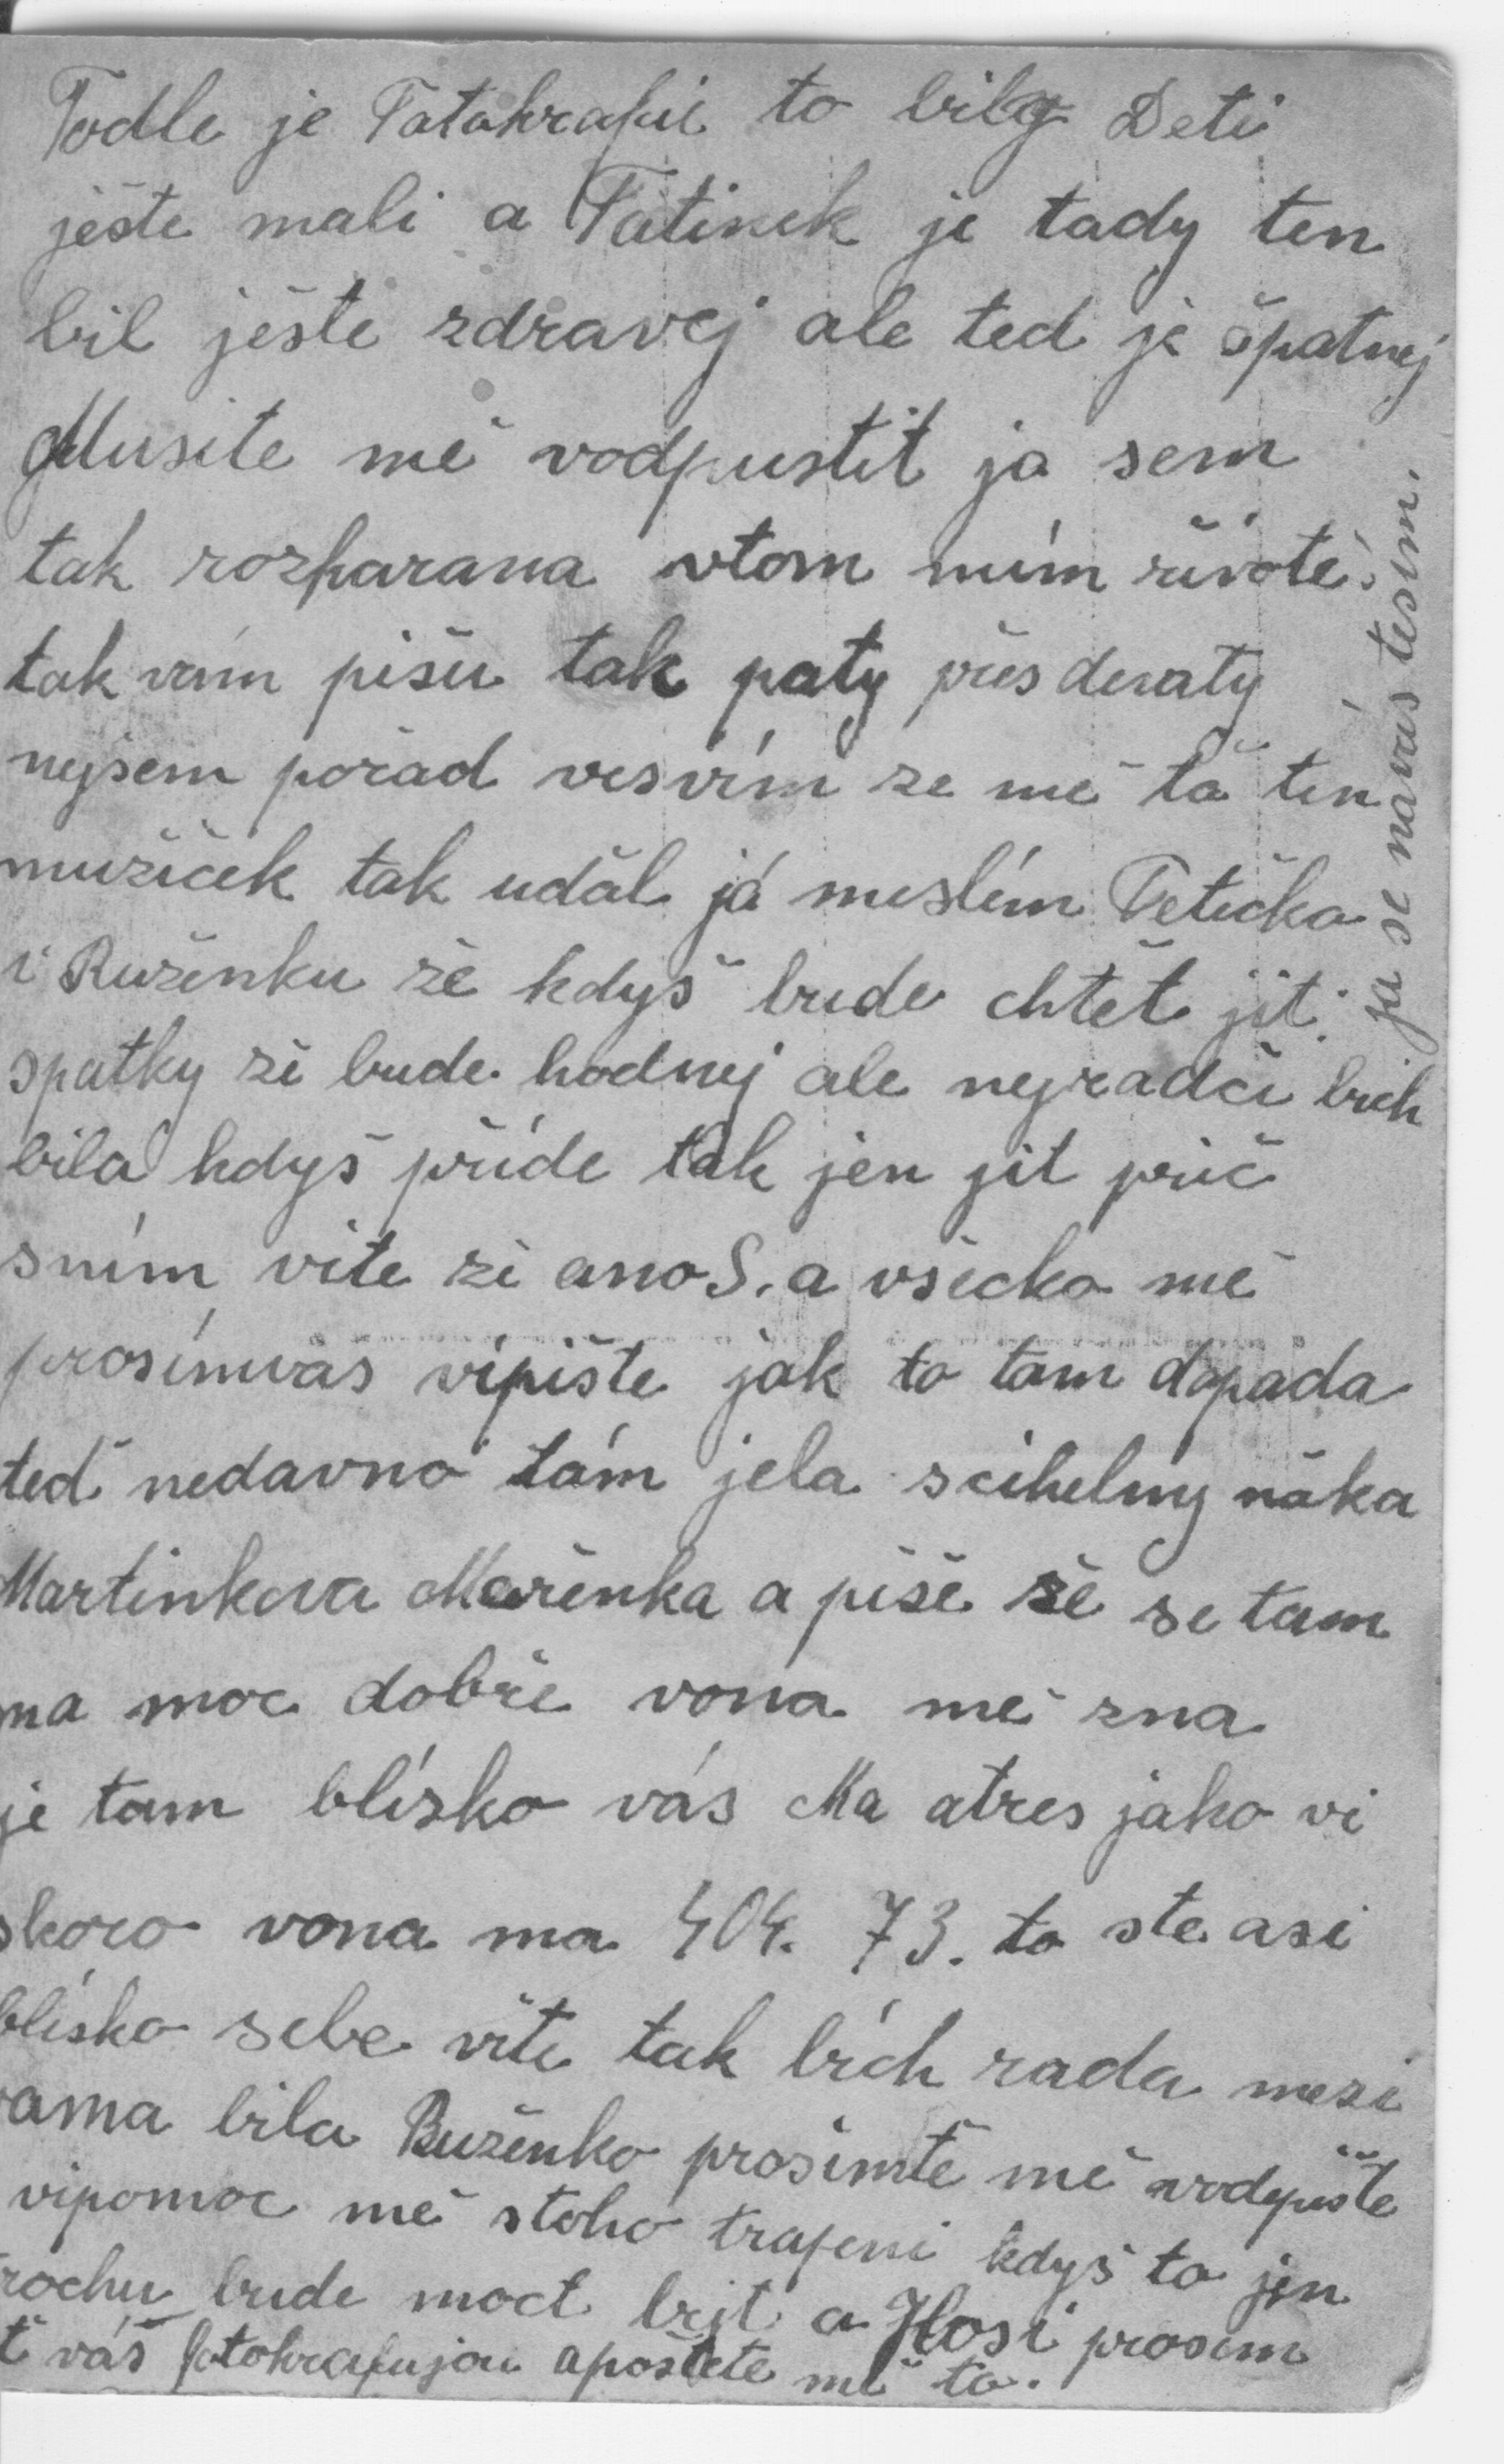 Todle je Fatohrafii to bily Deti
ještě mali a Tatinek je tady ten
bil ješte zdravej ale ted je špatnej
Musite mě vodpustit ja sem
tak rozharana vtom mím živote
tak vám pišu tak paty přes devaty
nejsem pořad vesvím že mě ta ten
mužiček tak udál já meslím Tetička
i Ruženku že kdyš bude chtět jit
spatky ži bude hodnej ale nejradči bich
bila kdyš přide tak jen jit prič
sním vite ži ano S. a všecko mě
prosímvás vipište jak to tam dopada
ted nedavno tám jela scihelny náka
Martinkova Marěnka a piše že se tam
ma moc dobře vona mě zna
je tam blízko vás Ma atres jako vi
skoro vona ma 404. 73. to ste asi
blisko sebe víte tak bich rada mezi
vama bila Ruženko prosimtě mě vodepište
vipomoc mě stoho trapeni kdyš to jen
trochu bude moct bejt a Hosi prosim
ť vás fotohrafujou apošlete mě to.
ja se navás tesím.